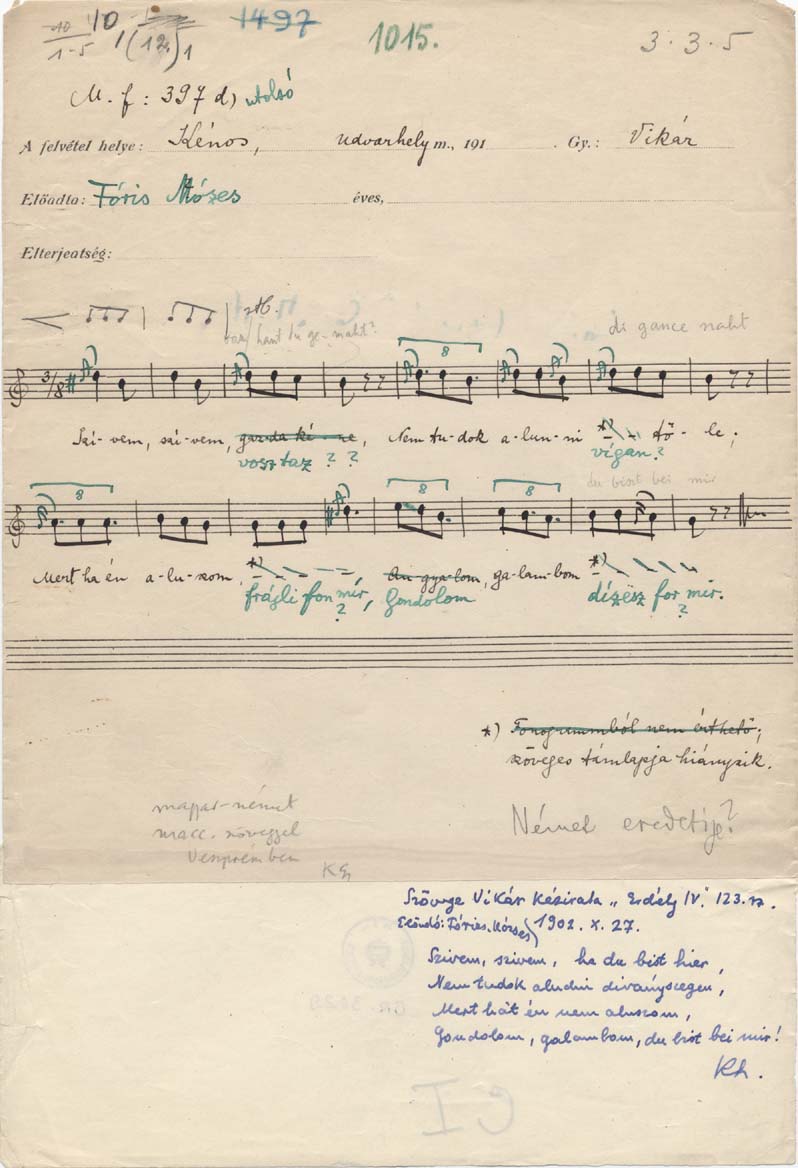 10 1497 1015. 3·3·5
1-5
M. f: 397 d) utolsó
A felvétel helye: Kénos, Udvarhely m., 191 . Gy.: Vikár
Előadta: Fóris Mózes éves,
Elterjedtség:
di gance naht
3/8
8
Szi-vem, szi-vem, gazda ké-ne, Nem tu-dok a-lun-ni *) tő-le;
vosz taz ? ? vígan?
du bist bei mir
8 8 8
Mert ha én a-lu-szom, *) An-gya-lom, ga-lam-bom *)
frágli fon mír, Gondolom dízēsz for mír.
? ?
*) Fonogrammból nem érthető;
szöveges támlapja hiányzik.
magyar-német
macc. szöveggel
Veszprémben
KG
Német eredetije?
Szövege Vikár kézirata „Erdély IV." 123. sz.
Előadó: Fóris Mózes 1902. X. 27.
Szivem, szivem, ha du bist hier,
Nem tudok aludni diványszegen,
Mert hát én nem aluszom,
Gondolom, galambom, du bist bei mir!
Kh.
C I